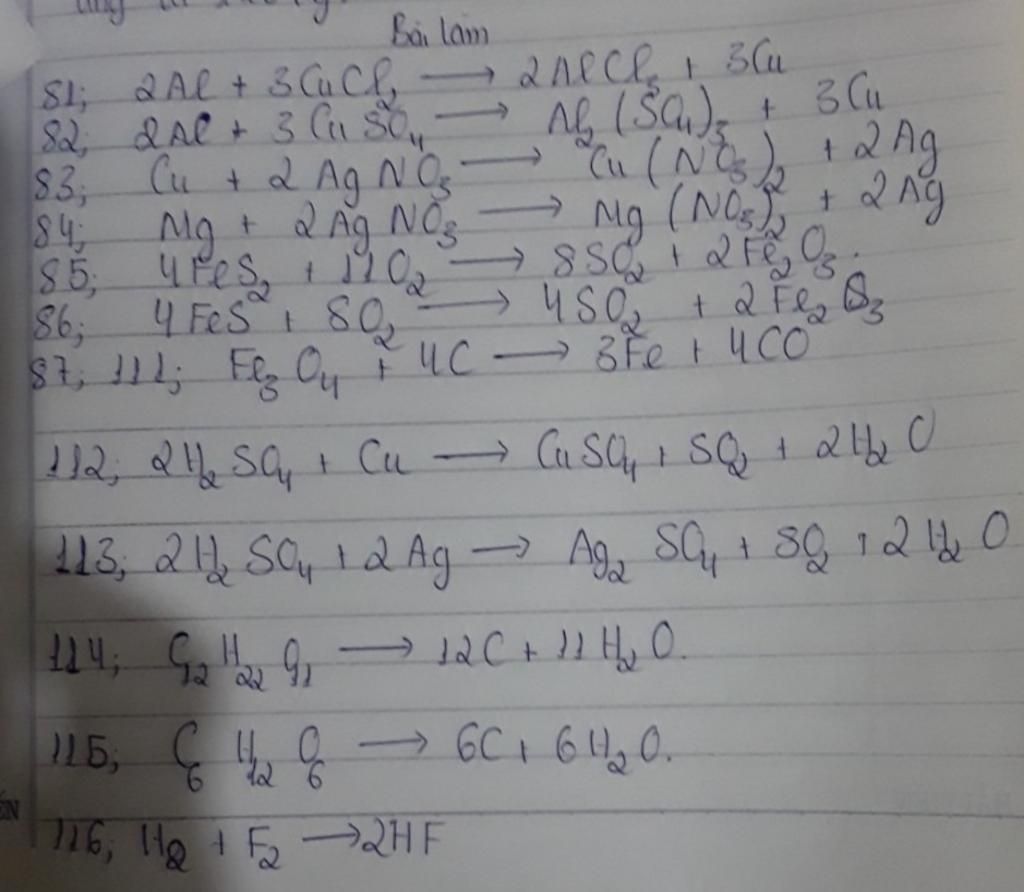 Bài làm
81; 2Al + 3CuCl₂ → 2AlCl₃ + 3Cu
82; 2Al + 3CuSO₄ → Al₂(SO₄)₃ + 3Cu
83; Cu + 2AgNO₃ → Cu(NO₃)₂ + 2Ag
84; Mg + 2AgNO₃ → Mg(NO₃)₂ + 2Ag
85; 4FeS₂ + 11O₂ → 8SO₂ + 2Fe₂O₃.
86; 4FeS + 8O₂ → 4SO₂ + 2Fe₂O₃
87; 111; Fe₃O₄ + 4C → 3Fe + 4CO
112; 2H₂SO₄ + Cu → CuSO₄ + SO₂ + 2H₂O
113; 2H₂SO₄ + 2Ag → Ag₂SO₄ + SO₂ + 2H₂O
114; C₁₂H₂₂O₁₁ → 12C + 11H₂O.
115; C₆H₁₂O₆ → 6C + 6H₂O.
116; H₂ + F₂ → 2HF